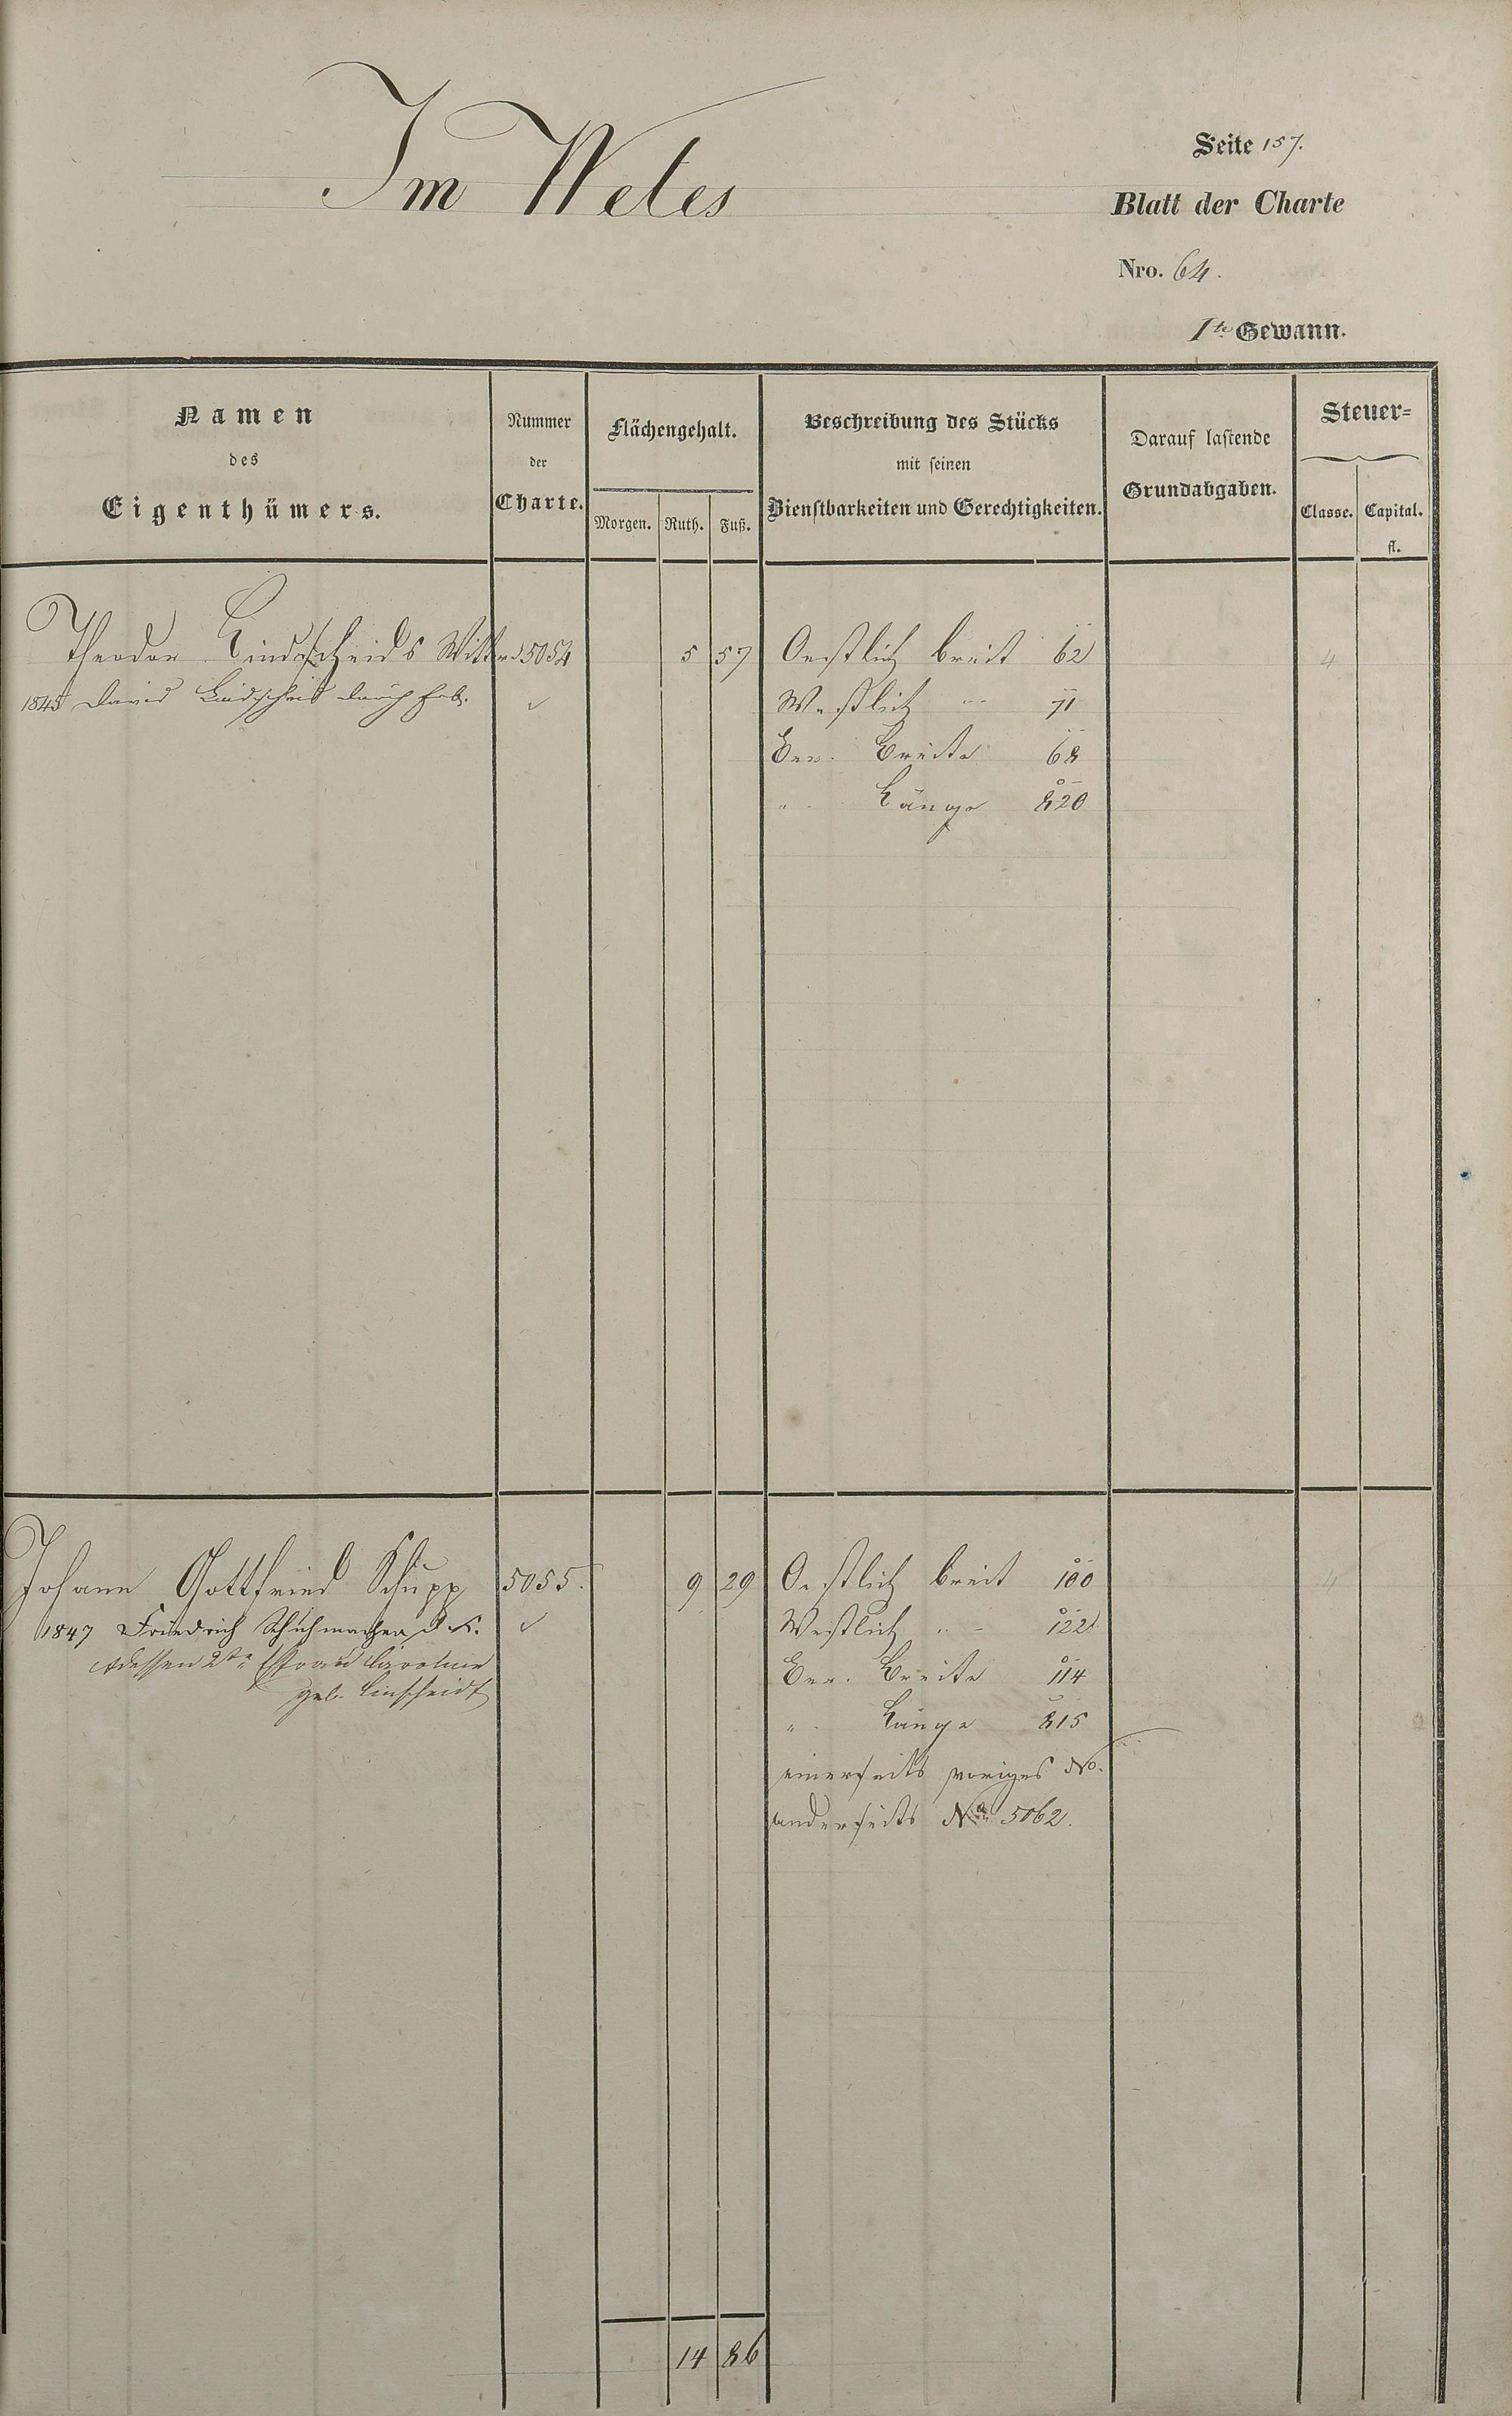 Im Wetes
Seite 157.
Blatt der Charte
Nro. 64.
1te Gewann.
Namen
des
Eigenthümers.
Nummer
der
Charte.
Flächengehalt.
Morgen. Ruth. Fuß.
Beschreibung des Stücks
mit seinen
Dienstbarkeiten und Gerechtigkeiten.
Darauf lastende
Grundabgaben.
Steuer-
Classe. Capital.
fl.
Theodor Lindscheids Wittwe 5054 5 57 Oestlich breit 62 4
1845 David Lindscheid durch Erb. Westlich " 71
Ger. Breite 68
" Länge 820
Johann Gottfried Schupp 5055. 9 29 Oestlich breit 100 4
1847 Friedrich Schuhmacher d. K. Westlich " 122
dessen 2te Ehefrau Caroline Ger. Breite 114
geb. Linscheidt
" Länge 815
einerseits voriges No.
anderseits No 5062.
14 86